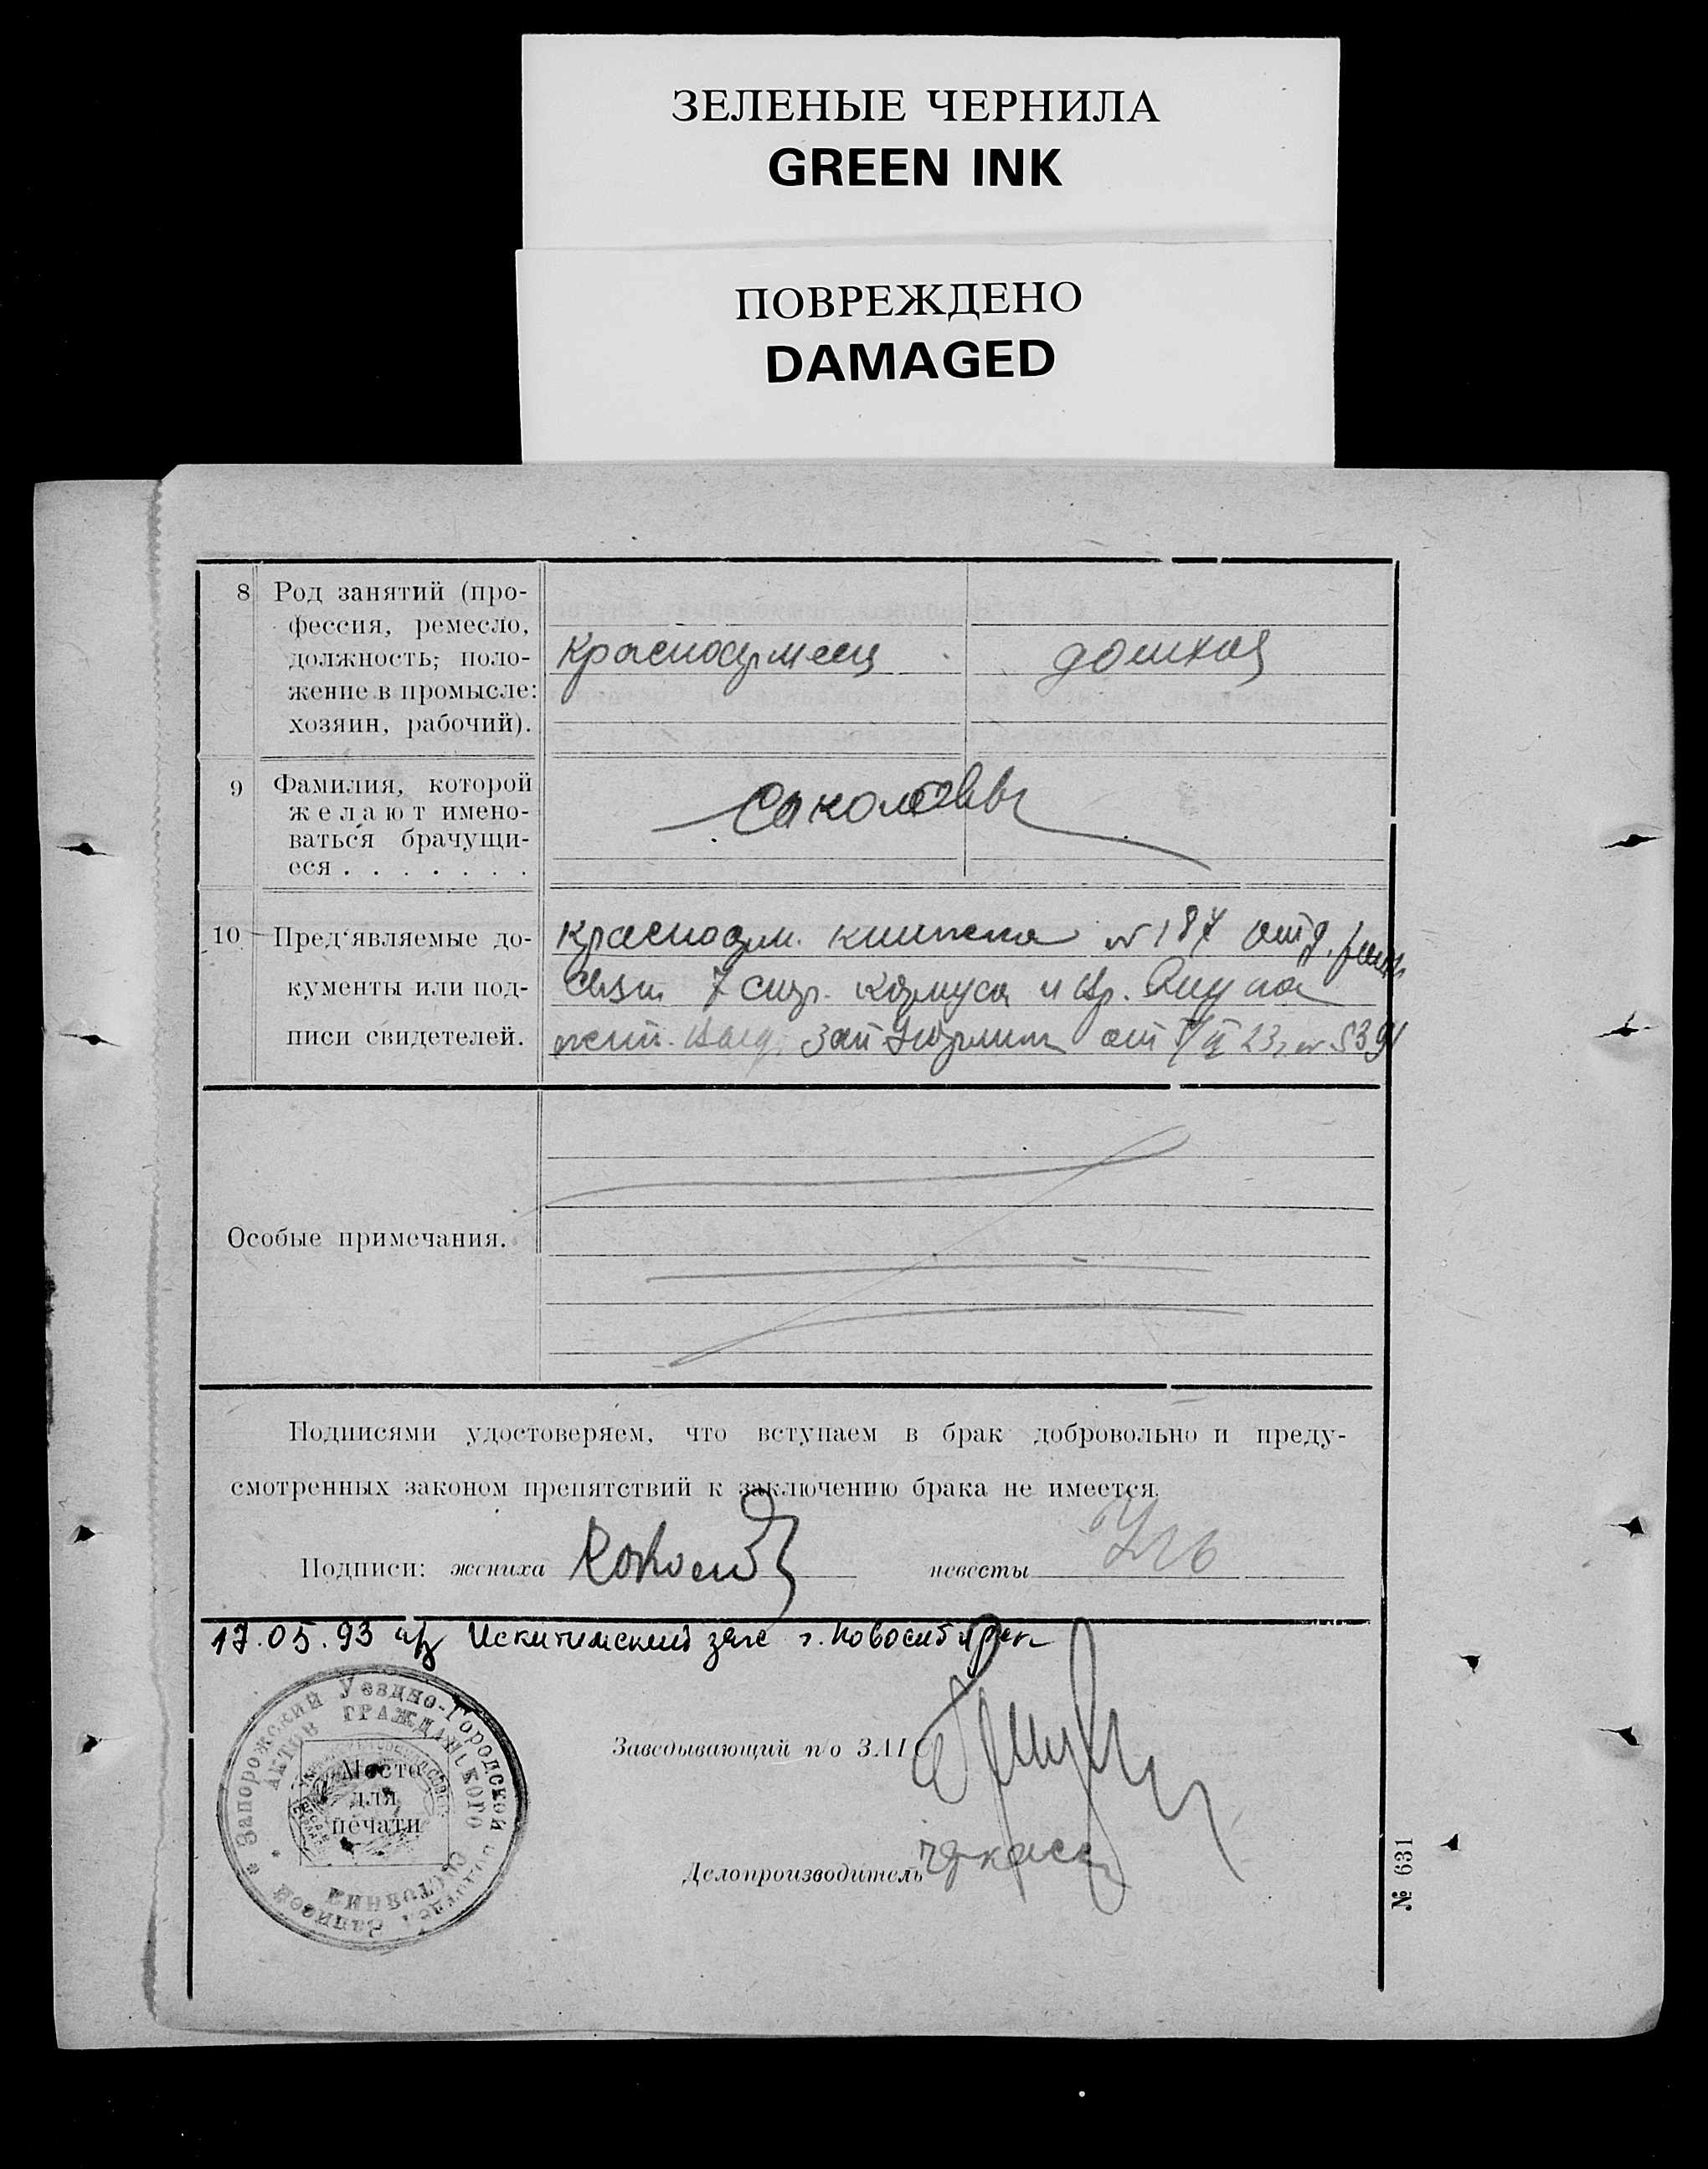 ЗЕЛЕНЫЕ ЧЕРНИЛА
GREEN INK
ПОВРЕЖДЕНО
DAMAGED
8 Род занятий (про-
фессия, ремесло,
должность; поло-
жение в промысле:
хозяин, рабочий).
Красноармеец
домхоз
9 Фамилия, которой
желают имено-
ваться брачущи-
еся . . . . . . .
10 Пред'являемые до-
кументы или под-
писи свидетелей.
Красноарм. книжка № 187 отд.
связи 7 стр. корпуса и
от 23, № 5391
Особые примечания.
Подписями удостоверяем, что вступаем в брак добровольно и преду-
смотренных законом препятствий к заключению брака не имеется.
Подписи: жениха
невесты
17.05.93 Искитимский загс г. Новосибирск
Запорожский Уездно-Городской подотдел Записей
АКТОВ ГРАЖДАНСКОГО СОСТОЯНИЯ
Место
для
печати
Заведывающий п/о ЗАГС
Делопроизводитель
№ 631